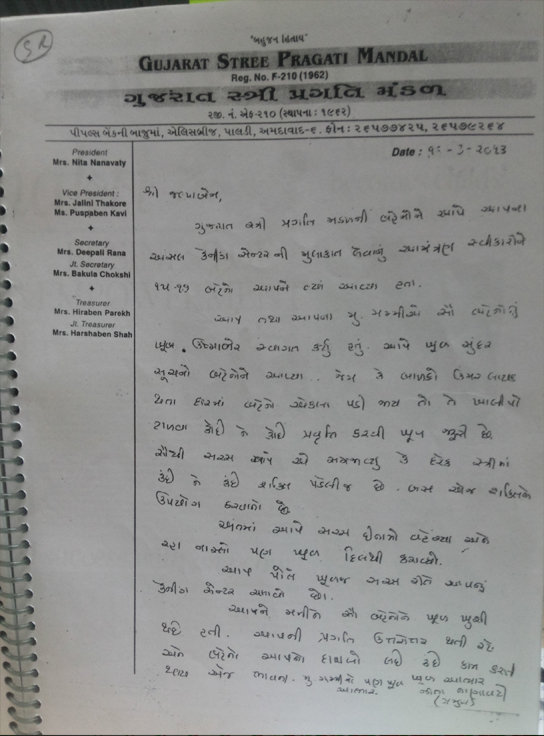 SR
"બહુજન હિતાય"
GUJARAT STREE PRAGATI MANDAL
Reg. No. F-210 (1962)
ગુજરાત સ્ત્રી પ્રગતિ મંડળ
રજી. નં. એફ-૨૧૦ (સ્થાપના : ૧૯૬૨)
પીપલ્સ બેંકની બાજુમાં, એલિસબ્રીજ, પાલડી, અમદાવાદ-૬. ફોન : ૨૬૫૭૭૪૨૫, ૨૬૫૭૯૨૬૪
President
Mrs. Nita Nanavaty
Vice President :
Mrs. Jalini Thakore
Ms. Puspaben Kavi
Secretary
Mrs. Deepali Rana
Jt. Secretary
Mrs. Bakula Chokshi
Treasurer
Mrs. Hiraben Parekh
Jt. Treasurer
Mrs. Harshaben Shah
Date : ૧૬-૩-૨૦૧૩
શ્રી જલ્પાબેન,
ગુજરાત સ્ત્રી પ્રગતિ મંડળની બહેનોને આપે આપના
સેન્ટરની મુલાકાત લેવાનું આમંત્રણ સ્વીકારીને
બહેનો આપને ત્યાં આવ્યા હતા.
આપ તથા આપના મુ. મમ્મીએ સૌ બહેનોનું
ખૂબ ઉષ્માભેર સ્વાગત કર્યું હતું. આપે ખૂબ સુંદર
સૂચનો બહેનોને આપ્યા.. જેમ કે બાળકો ઉંમર લાયક
થતા ઘરમાં બહેનો એકલા પડી જાય તો તે ખાલીપો
ટાળવા કોઈ ને કોઈ પ્રવૃત્તિ કરવી ખૂબ જરૂરી છે.
સૌથી સરસ આપે એ સમજાવ્યું કે દરેક સ્ત્રીમાં
કંઈ ને કંઈ શક્તિ પડેલી જ છે. બસ એજ શક્તિનો
ઉપયોગ કરવાનો છે.
અંતમાં આપે સરસ ઈનામો વહેંચ્યા અને
નાસ્તો પણ ખૂબ દિલથી કરાવ્યો.
આપ પોતે ખૂબજ સરસ રીતે આપનું
સેન્ટર ચલાવો છો.
આપને મળીને સૌ બહેનોને ખૂબ ખુશી
થઈ હતી. આપની પ્રગતિ ઉત્તરોત્તર થતી રહે
અને બહેનો આપનો દાખલો લઈ કંઈ કામ કરતી
થાય એજ ભાવના. મુ. મમ્મીનો પણ ખૂબ ખૂબ આભાર
આભાર.